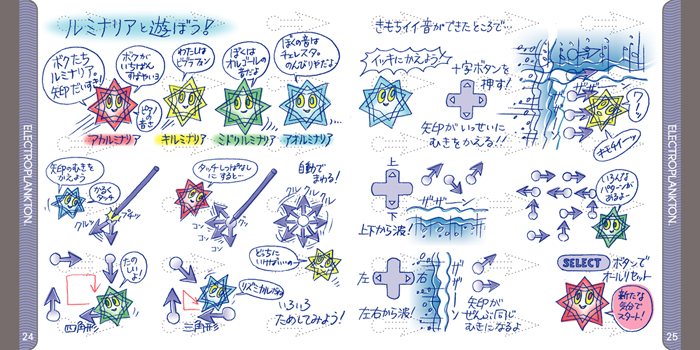 ルミナリアと遊ぼう!
ボクたち
ルミナリア。
矢印だいすき!
ボクが
いちばん
すばやいヨ
ピアノの
音さ
わたしは
ビブラフォン
ぼくは
オルゴールの
音だよ
ぼくの音は
チェレスタ。
のんびりやだよ
アカルミナリア
キルミナリア
ミドリルミナリア
アオルミナリア
矢印のむきを
かえよう
かるく
タッチ
クルン
タッチしっぱなし
にすると…
コン
コン
コン
自動で
まわる!
クル クル クル
たのしいよ!
四角形
リズミカルだね
三角形
どっちに
いけばいいのー
いろいろ
ためしてみよう!
ELECTROPLANKTON.
24
きもちイイ音ができたところで…
イッキにかえよう
十字ボタンを
押す!
矢印がいっせいに
むきをかえる!!
ザザーン
キモチイーッ
上
下
上下から波!
ザザザーン
左
右
左右から波!
矢印が
ぜんぶ同じ
むきになるよ
いろんな
パターンが
あるよー
SELECT ボタンで
オールリセット
新たな
気分で
スタート!
ELECTROPLANKTON.
25